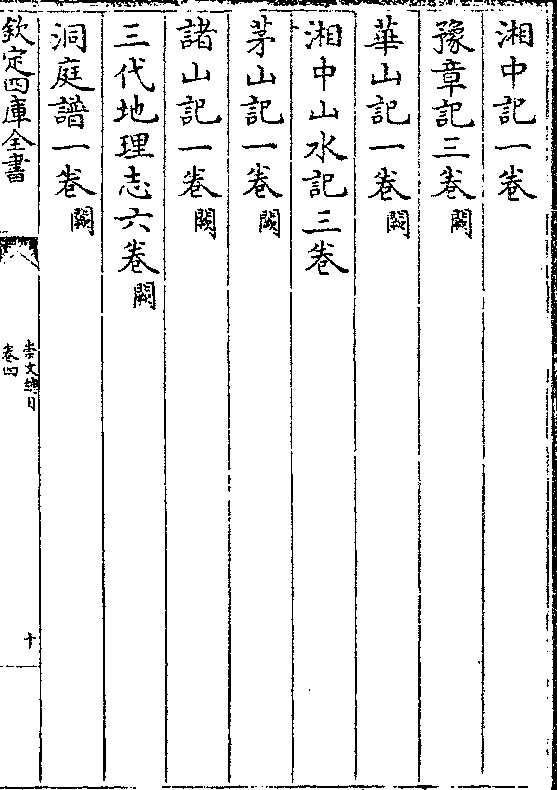 湘中記一卷
豫章記三卷闕
華山記一卷闕
湘中山水記三卷
茅山記一卷闕
諸山記一卷闕
三代地理志六卷闕
洞庭譜一卷闕
欽定四庫全書
崇文總目
卷四
十